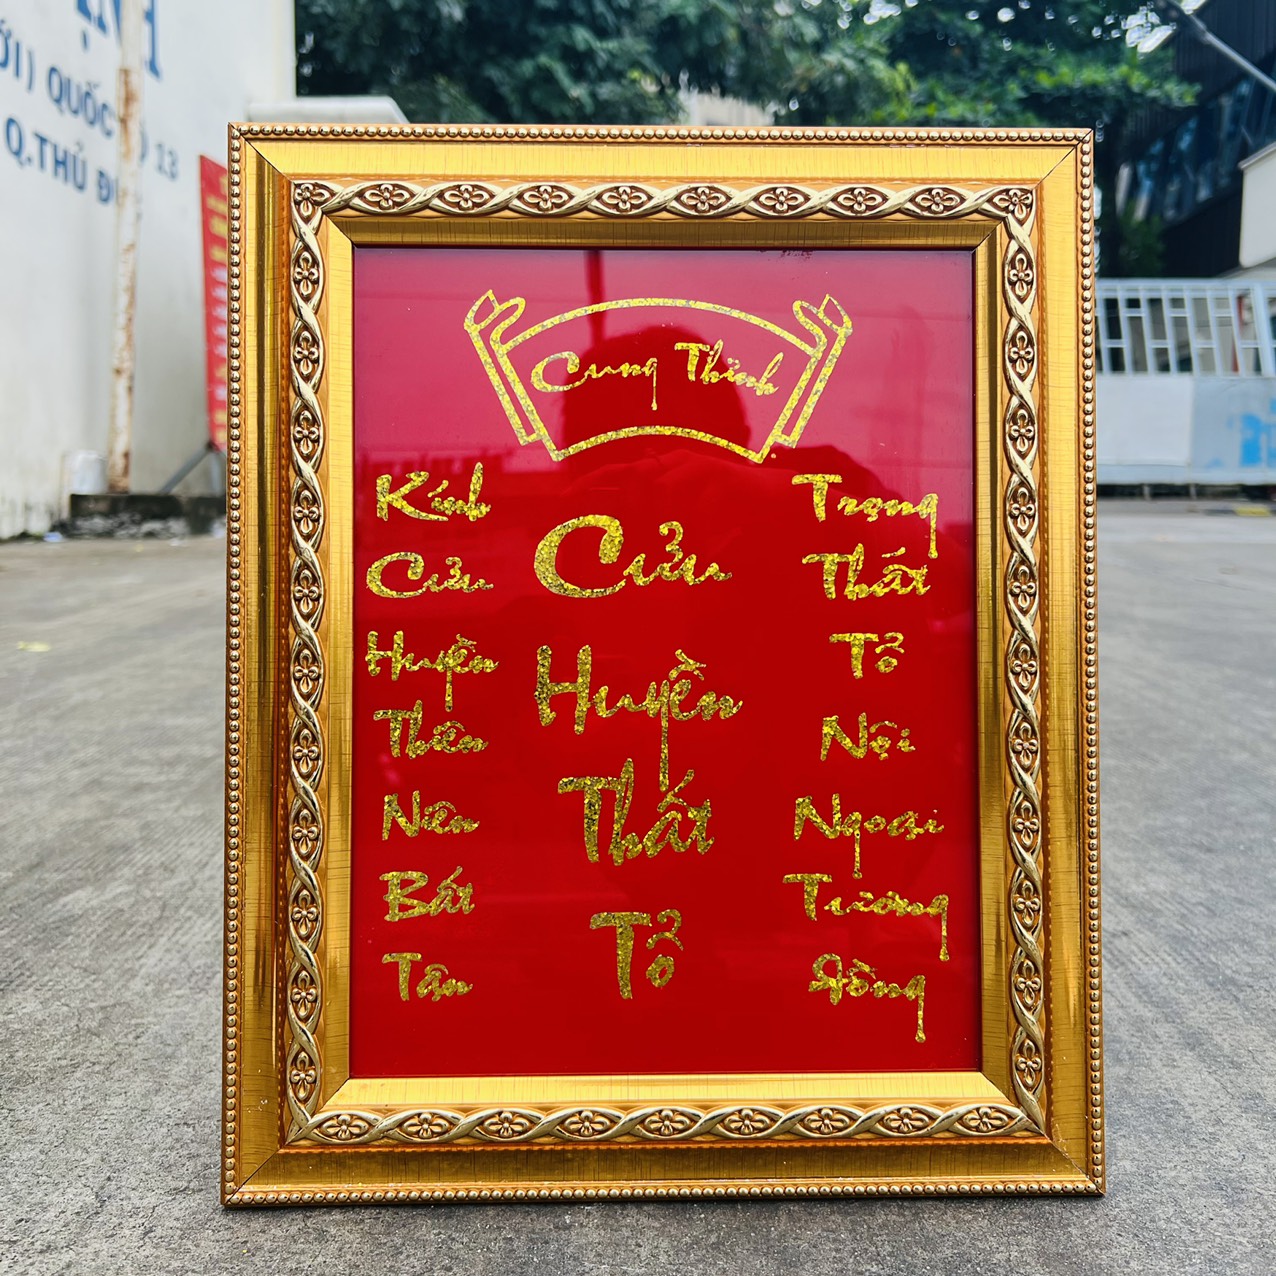 ỚI) QUỐC
13
Q.THỦ Đ
Cung Thỉnh
Kính
Cửu
Huyền
Thiên
Niên
Bất
Tận
Cửu
Huyền
Thất
Tổ
Trọng
Thất
Tổ
Nội
Ngoại
Tương
Đồng